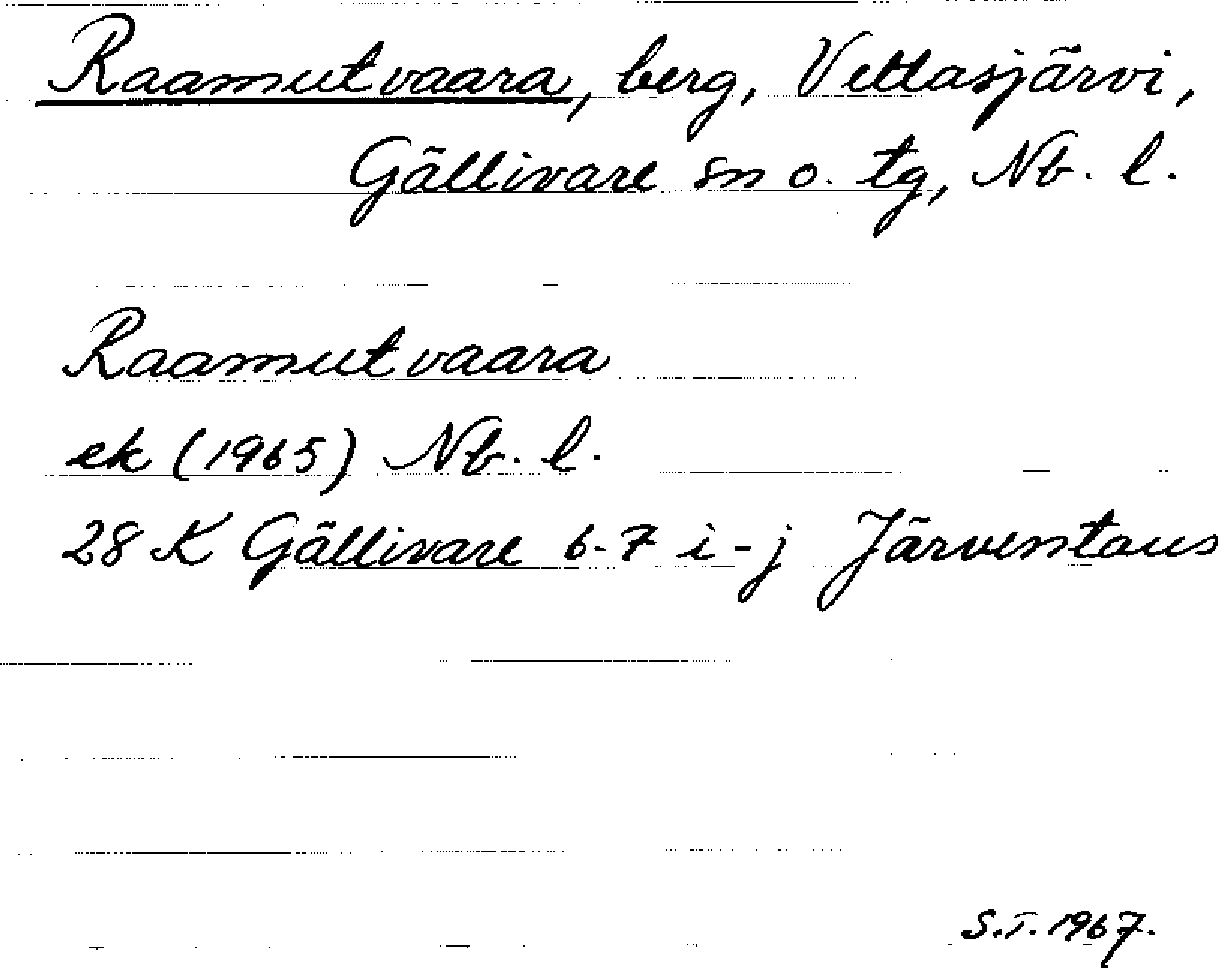 Raamutvaara, berg, Vettasjärvi,
Gällivare sn o. tg, Nb. l.
Raamutvaara
ek (1965) Nb. l.
28 K Gällivare 6-7 i-j Järventaus
S.T. 1967.